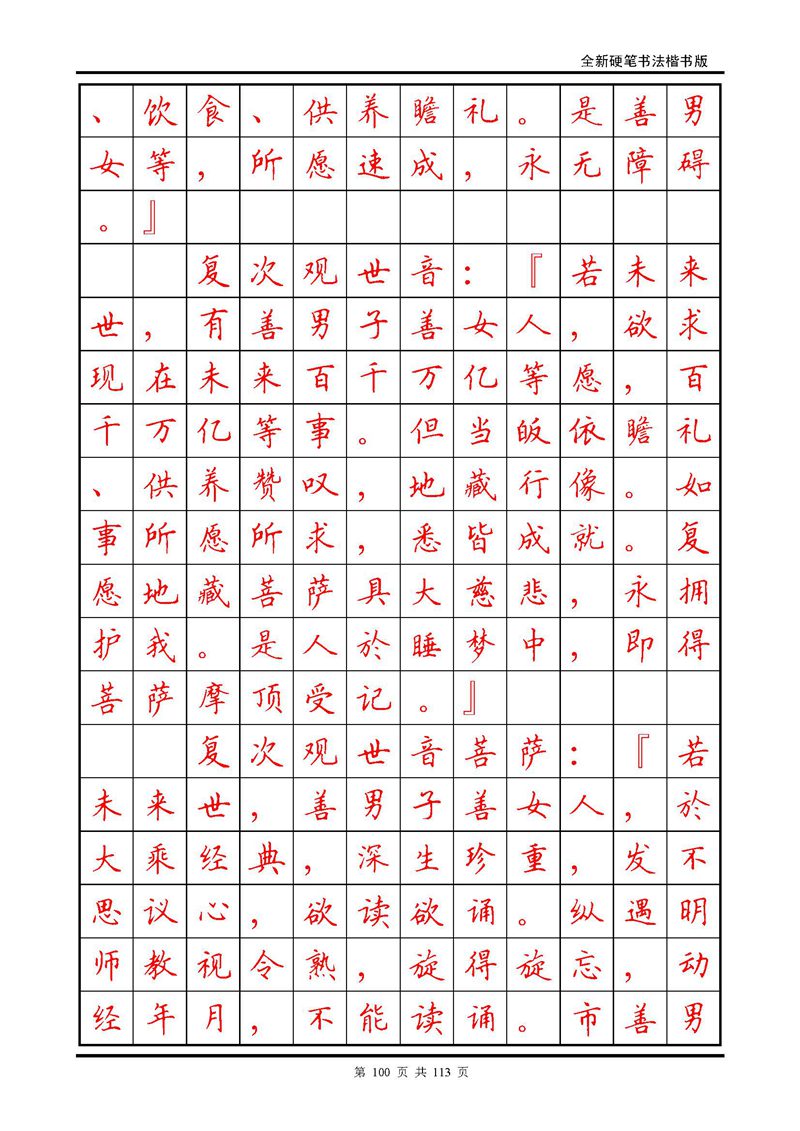 全新硬笔书法楷书版
、饮食、供养瞻礼。是善男
女等，所愿速成，永无障碍
。』
复次观世音：『若未来
世，有善男子善女人，欲求
现在未来百千万亿等愿，百
千万亿等事。但当皈依瞻礼
、供养赞叹，地藏行像。如
事所愿所求，悉皆成就。复
愿地藏菩萨具大慈悲，永拥
护我。是人於睡梦中，即得
菩萨摩顶受记。』
复次观世音菩萨：『若
未来世，善男子善女人，於
大乘经典，深生珍重，发不
思议心，欲读欲诵。纵遇明
师教视令熟，旋得旋忘，动
经年月，不能读诵。市善男
第 100 页 共 113 页